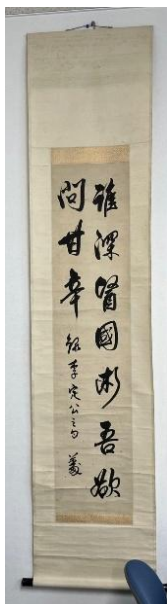 誰深醫國術吾欲
問甘辛 錄李定公之句